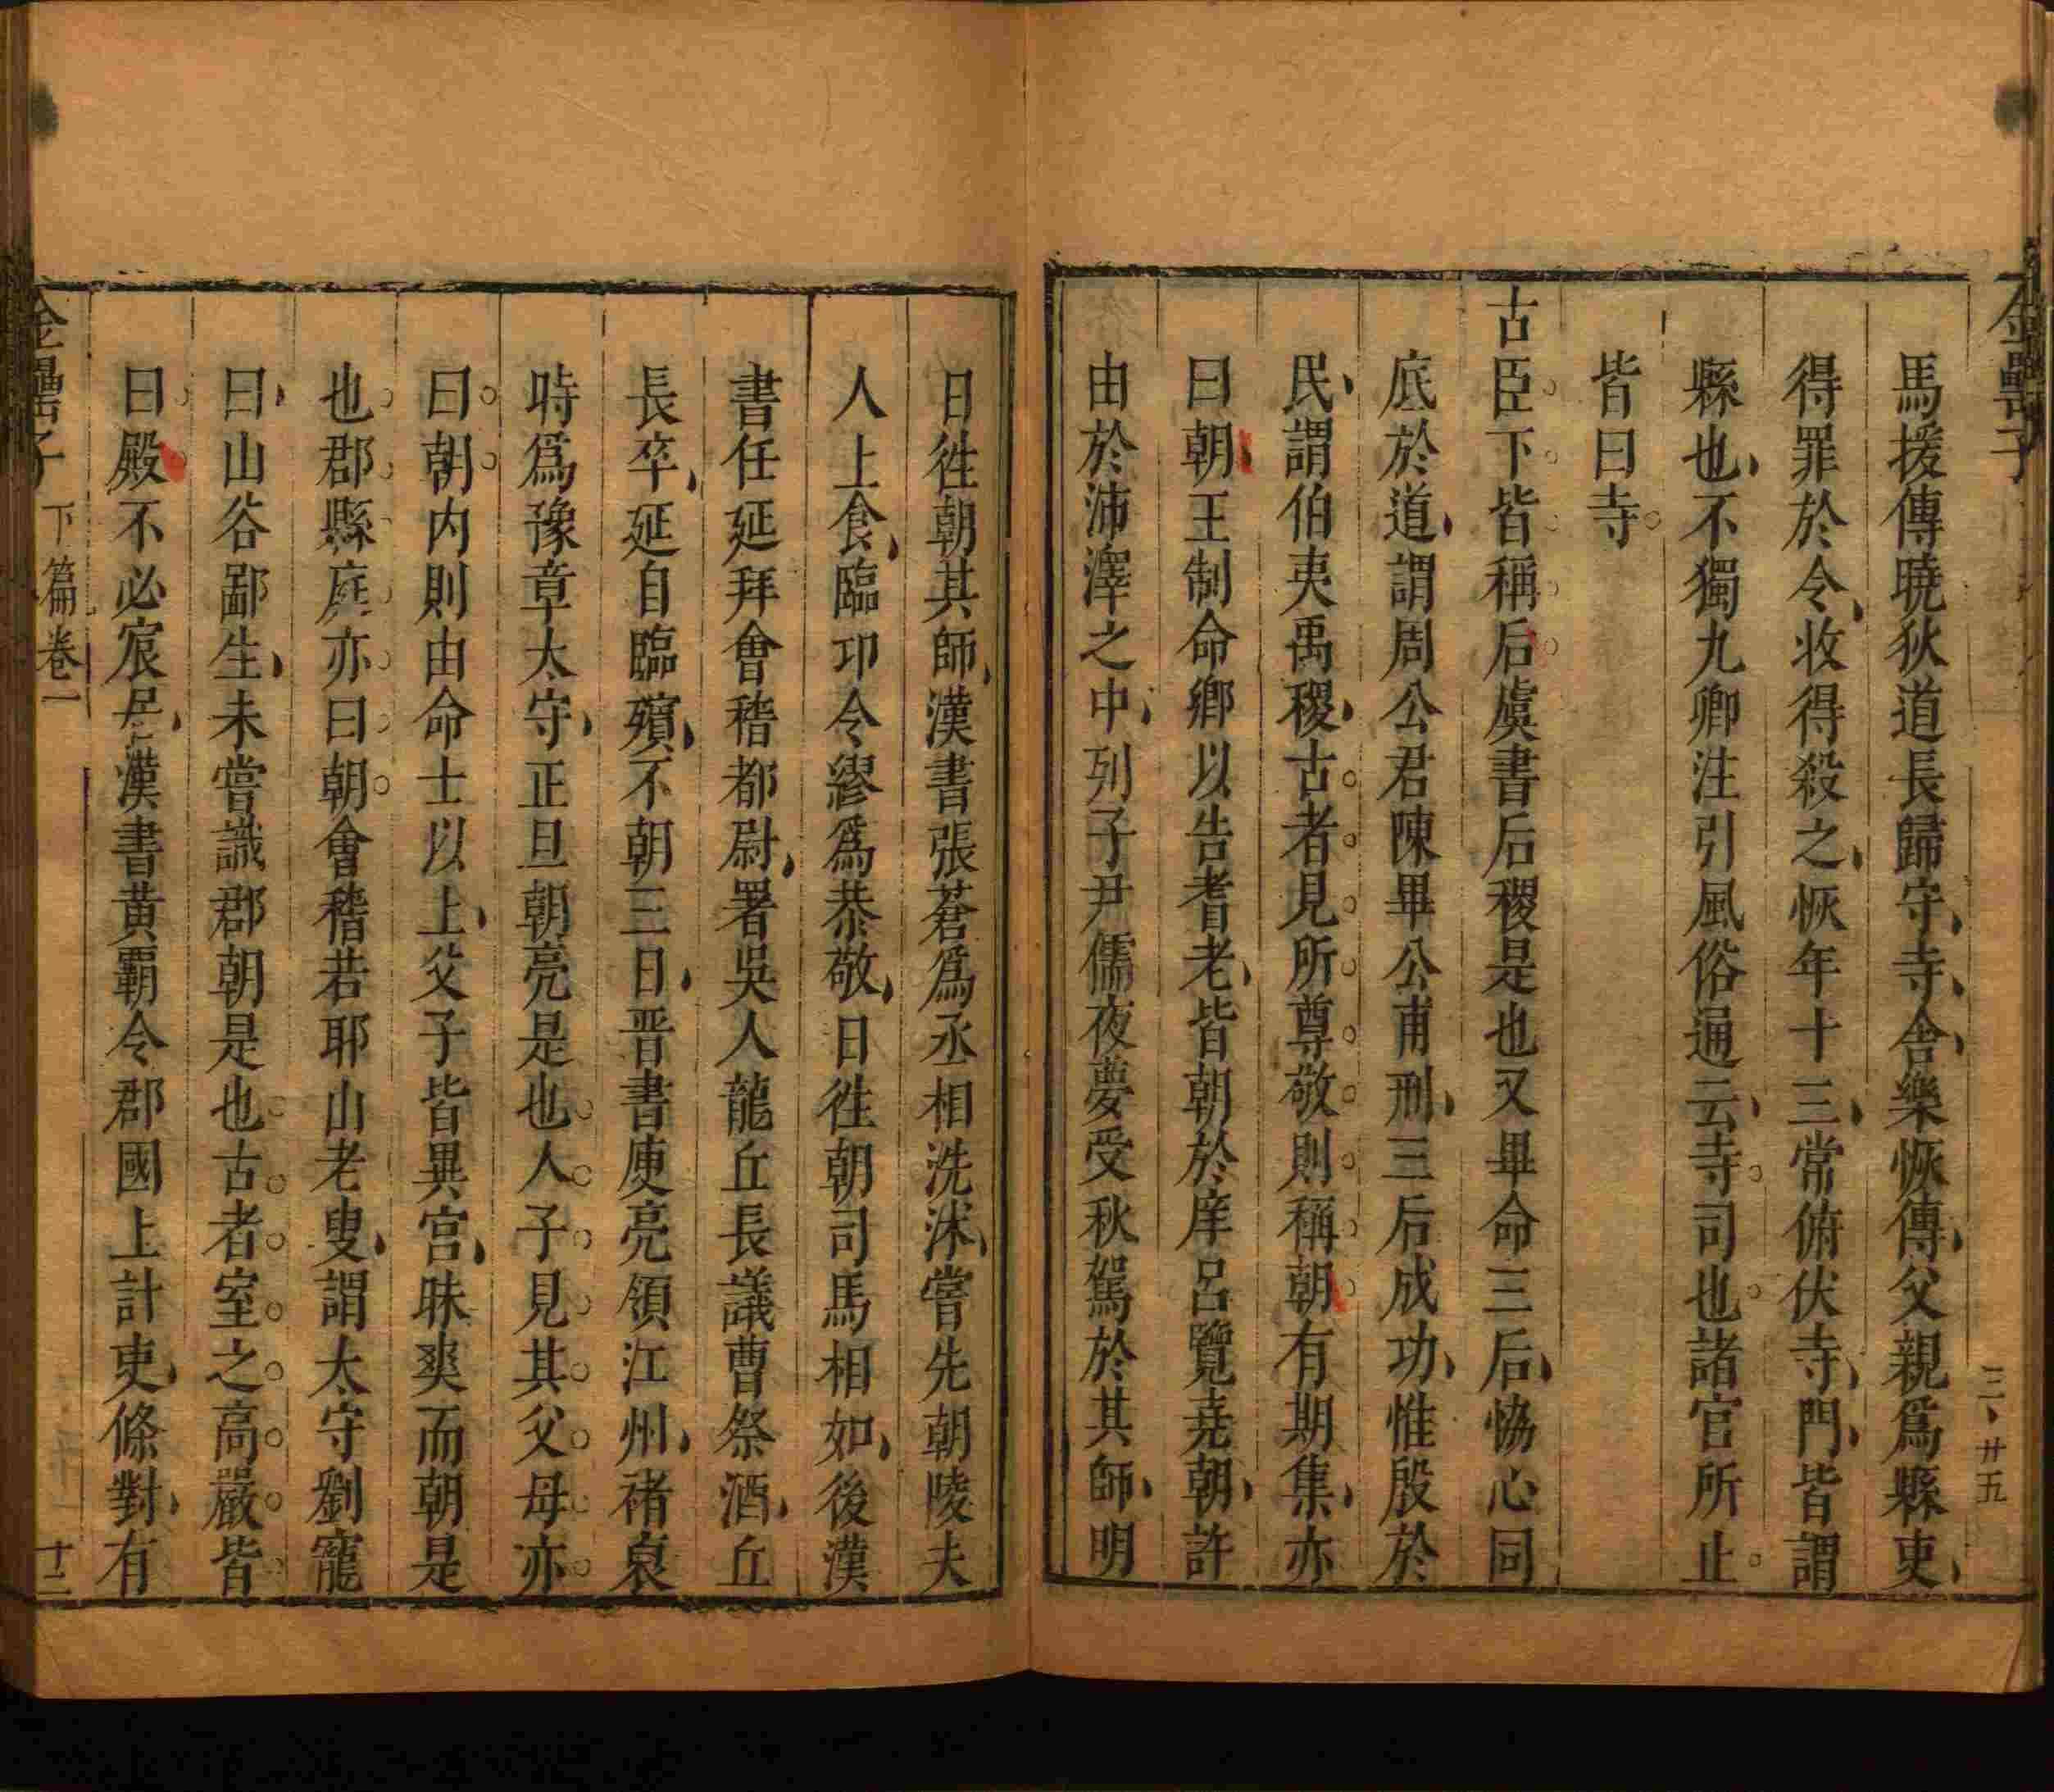 金罍子
三、廿五
馬援傳曉狄道長歸守、寺、舍、樂恢傳、父親爲縣吏、
得罪於令、收得殺之、恢年十三、常俯伏寺、門、皆謂
縣也、不獨九卿注引風俗通云、寺司也諸官所止。
皆曰寺。
古臣下皆稱后虞書后稷是也又畢命三后、恊心同
底於道、謂周公君陳畢公甫刑、三后成功、惟殷於
民、謂伯夷禹稷、古者見所尊敬則稱朝有期集、亦
曰朝王制命鄉以告耆老、皆朝於庠呂覽堯朝、許
由於沛澤之中、列子尹儒夜夢受秋駕於其師、明
日徃朝其師、漢書張蒼爲丞相洗沐、嘗先朝陵夫
人上食、臨邛令繆爲恭敬、日徃朝司馬相如、後漢
書任延拜會稽都尉、署吳人龍丘長議曹祭酒、丘
長卒、延自臨殯、不朝三日、晋書庾亮領江州、禇裒
時爲豫章太守、正旦朝亮是也人子見其父母亦
曰朝内則由命士以上、父子皆異宫、昧爽而朝是
也郡縣庭亦曰朝會稽若耶山老叟、謂太守劉寵
曰、山谷鄙生、未嘗識郡朝是也古者室之高嚴皆
曰殿不必宸居、漢書黄霸令郡國上計吏、條對、有
金罍子
下篇卷一
十二